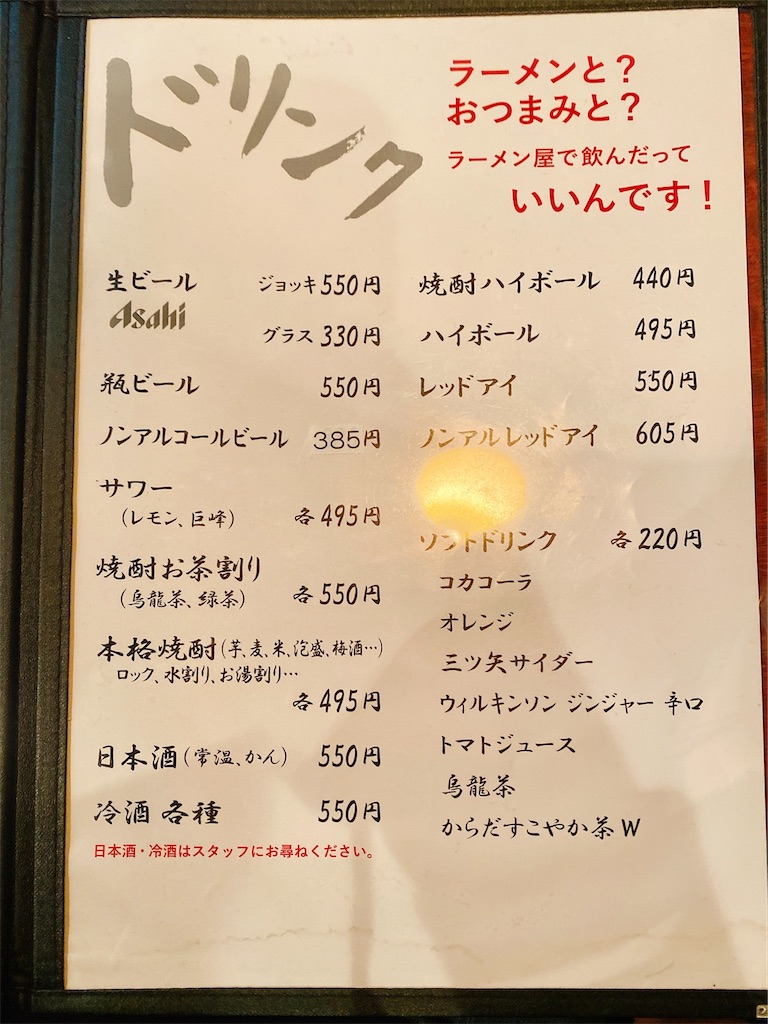 ドリンク
ラーメンと？
おつまみと？
ラーメン屋で飲んだって
いいんです！
生ビール ジョッキ 550円
Asahi
グラス 330円
瓶ビール 550円
ノンアルコールビール 385円
サワー
（レモン、巨峰） 各 495円
焼酎お茶割り
（烏龍茶、緑茶） 各 550円
本格焼酎（芋、麦、米、泡盛、梅酒…）
ロック、水割り、お湯割り…
各 495円
日本酒（常温、かん） 550円
冷酒 各種 550円
日本酒・冷酒はスタッフにお尋ねください。
焼酎ハイボール 440円
ハイボール 495円
レッドアイ 550円
ノンアルレッドアイ 605円
ソフトドリンク 各 220円
コカコーラ
オレンジ
三ツ矢サイダー
ウィルキンソン ジンジャー 辛口
トマトジュース
烏龍茶
からだすこやか茶 W